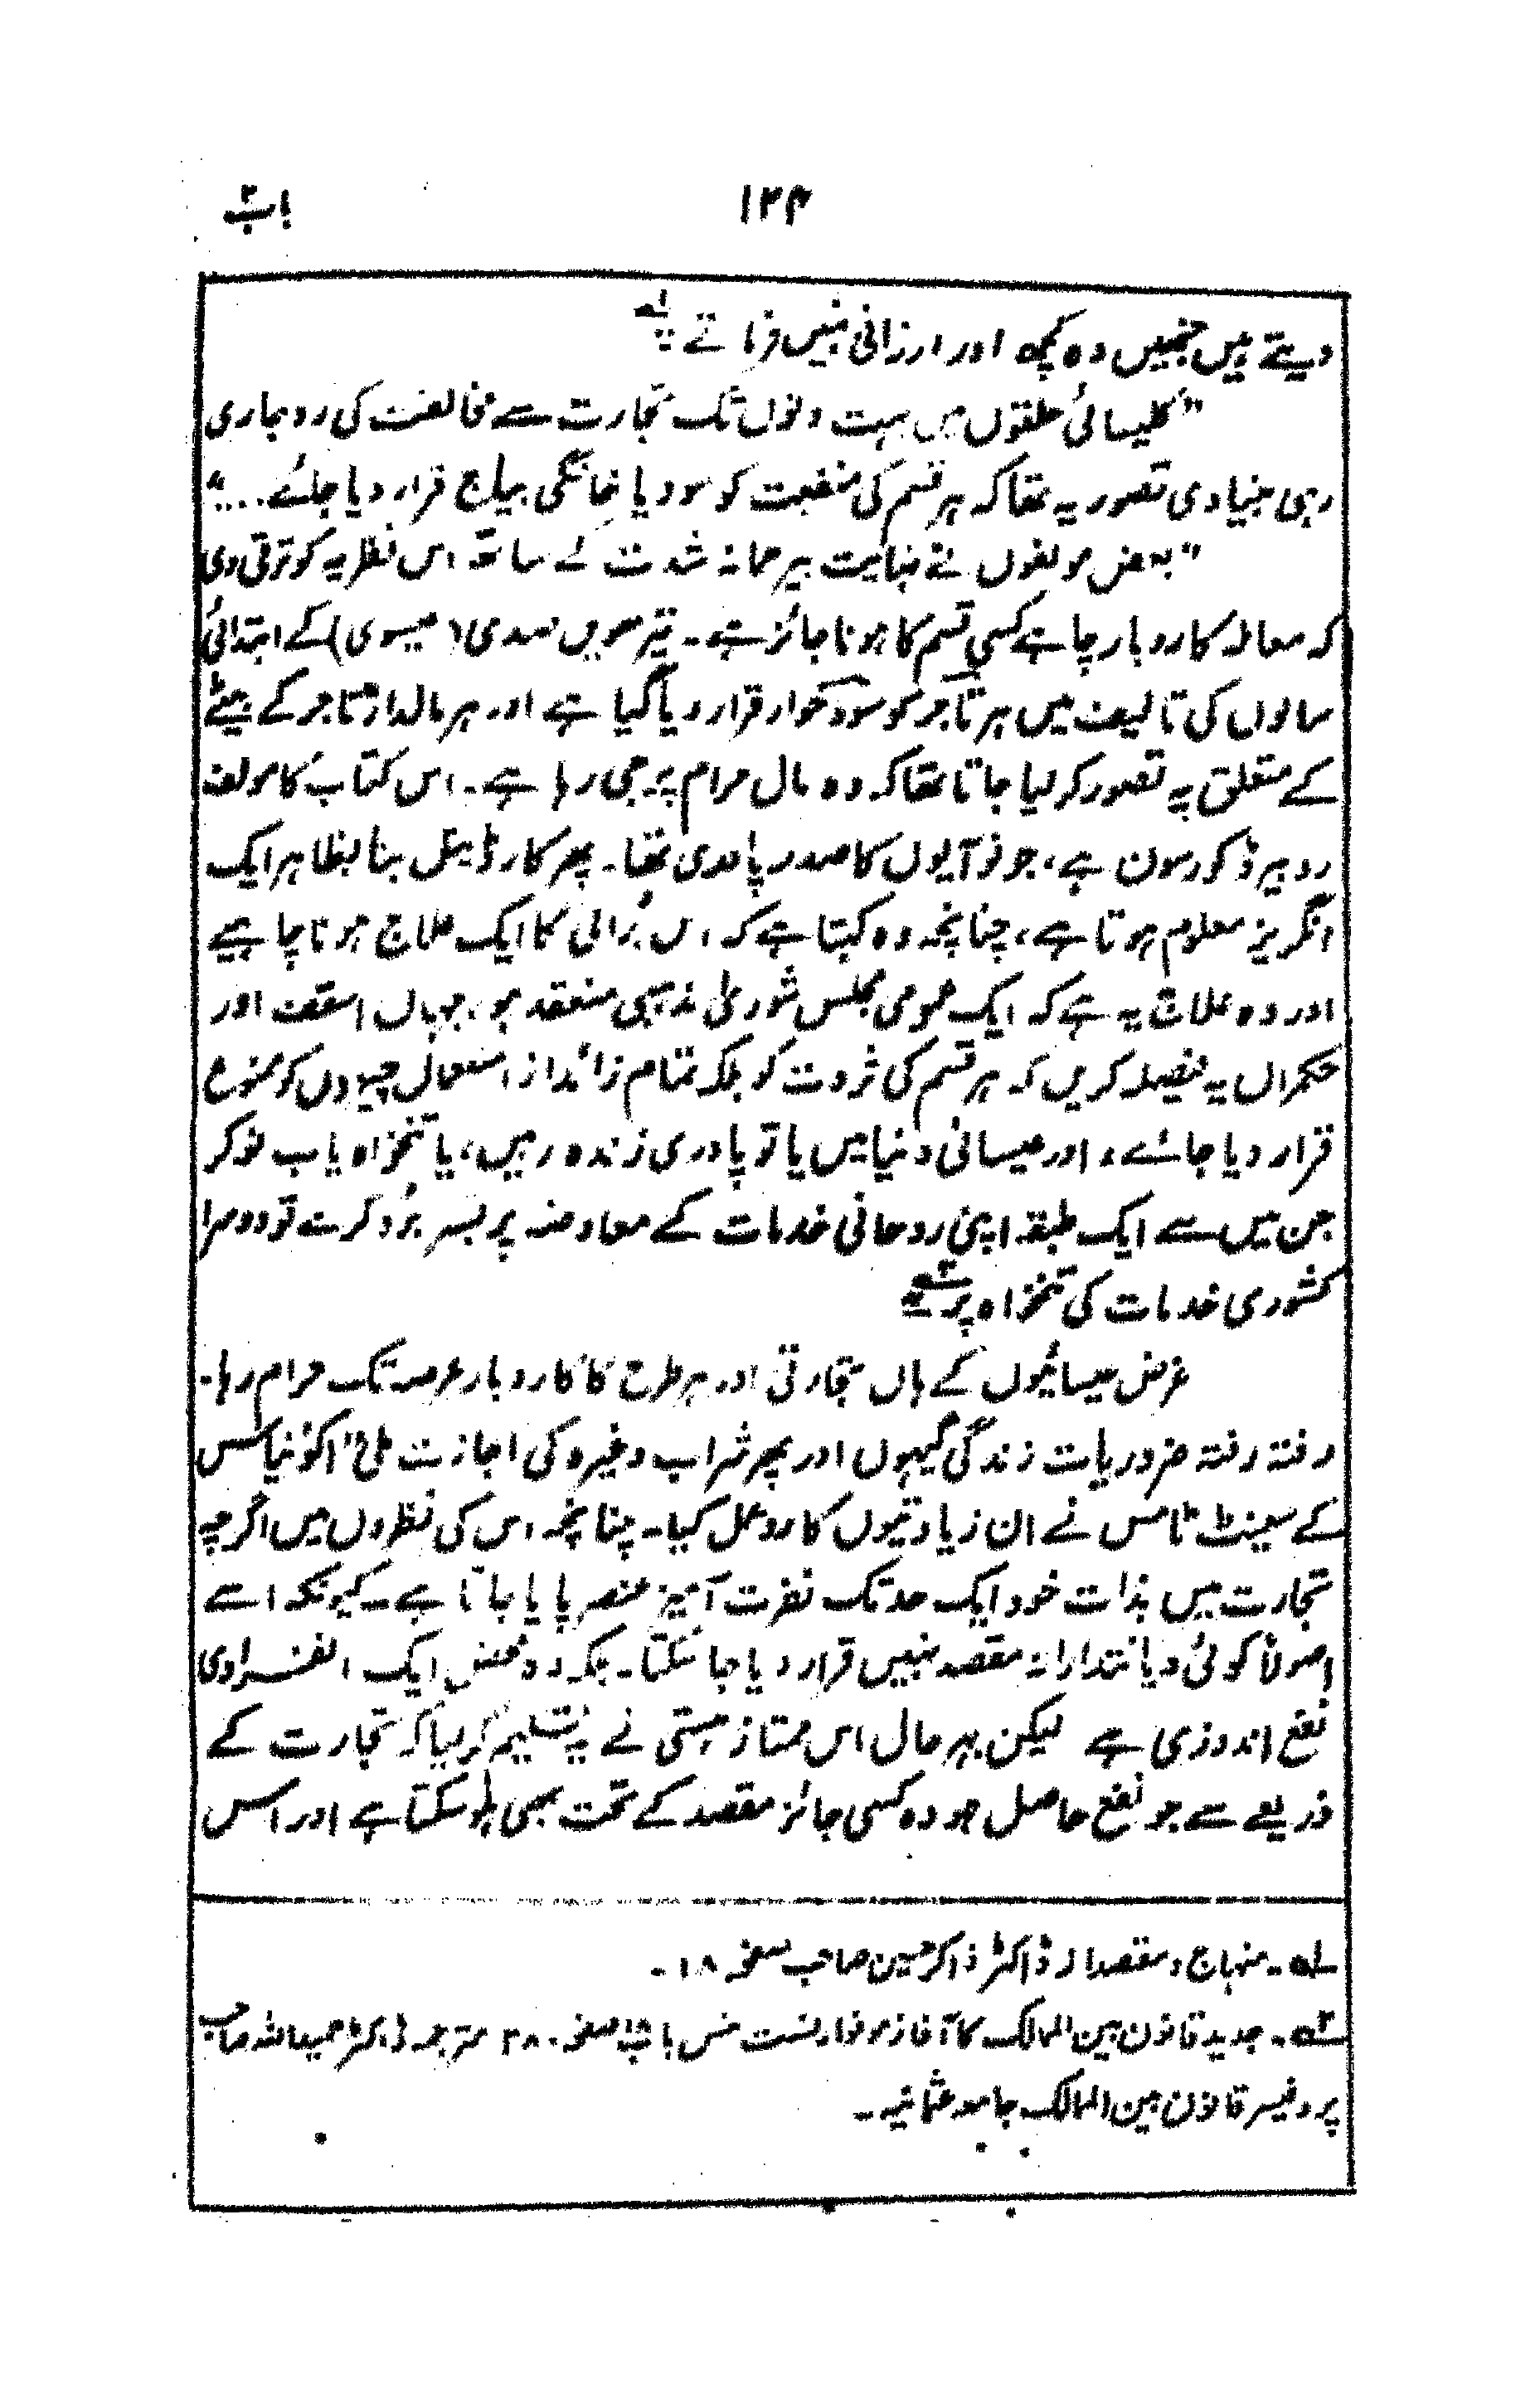 باب۲ ۱۲۴
دیتے ہیں جنہیں وہ کچھ اور ارزانی نہیں فرماتے"۱؎
"کلیسائی حلقوں میں بہت دنوں تک تجارت سے مخالفت کی رو جاری
رہی بنیادی تصور یہ تھا کہ ہر قسم کی منفعت کو سود یا خانگی بیاج قرار دیا جائے...."
"بعض مولفوں نے نہایت بیرحمانہ شدت کے ساتھ اس نظریہ کو ترقی دی
کہ معاملہ کاروبار چاہے کسی قسم کا ہو ناجائز ہے۔ تیرھویں صدی (عیسوی) کے ابتدائی
سالوں کی تالیف میں ہر تاجر کو سود خوار قرار دیا گیا ہے اور ہر مالدار تاجر کے بیٹے
کے متعلق یہ تصور کر لیا جاتا تھا کہ وہ مال حرام پر جی رہا ہے۔ اس کتاب کا مولف
روبیر ڈکورسون ہے، جو نوآیوں کا صدر پادری تھا۔ پھر کارڈینل بنا بظاہر ایک
انگریز معلوم ہوتا ہے، چنانچہ وہ کہتا ہے کہ اس برائی کا ایک علاج ہونا چاہیے
اور وہ علاج یہ ہے کہ ایک عمومی مجلس شوریٰ مذہبی منعقد ہو، جہاں اسقف اور
حکمراں یہ فیصلہ کریں کہ ہر قسم کی ثروت کو بلکہ تمام زائد از استعمال چیزوں کو ممنوع
قرار دیا جائے، اور عیسائی دنیا میں یا تو پادری زندہ رہیں، یا تنخواہ یاب نوکر
جن میں سے ایک طبقہ اپنی روحانی خدمات کے معاوضہ پر بسر برد کرے تو دوسرا
کشوری خدمات کی تنخواہ پر"۲؎
غرض عیسائیوں کے ہاں تجارتی اور ہر طرح کا کاروبار عرصہ تک حرام رہا۔
رفتہ رفتہ ضروریات زندگی گیہوں اور پھر شراب وغیرہ کی اجازت ملی "اکوئیناکس
کے سینٹ ٹامس نے ان زیادتیوں کا ردعمل کیا۔ چنانچہ اس کی نظروں میں اگرچہ
تجارت میں بذات خود ایک حد تک نفرت آمیز عنصر پایا جاتا ہے۔ کیونکہ اسے
اصولاً کوئی دیانتدارانہ مقصد نہیں قرار دیا جا سکتا۔ بلکہ وہ محض ایک انفرادی
نفع اندوزی ہے لیکن بہر حال اس ممتاز ہستی نے یہ تسلیم کر لیا کہ تجارت کے
ذریعے سے جو نفع حاصل ہو وہ کسی جائز مقصد کے تحت بھی ہو سکتا ہے اور اس
۱؎۔ منہاج و مقصد از ڈاکٹر ذاکر حسین صاحب صفحہ ۱۸۔
۲؎۔ جدید قانون بین الممالک کا آغاز مولفہ ارنست نس باب صفحہ ۲۸۰ مترجمہ ڈاکٹر حمید اللہ صاحب
پروفیسر قانون بین الممالک جامعہ عثمانیہ۔